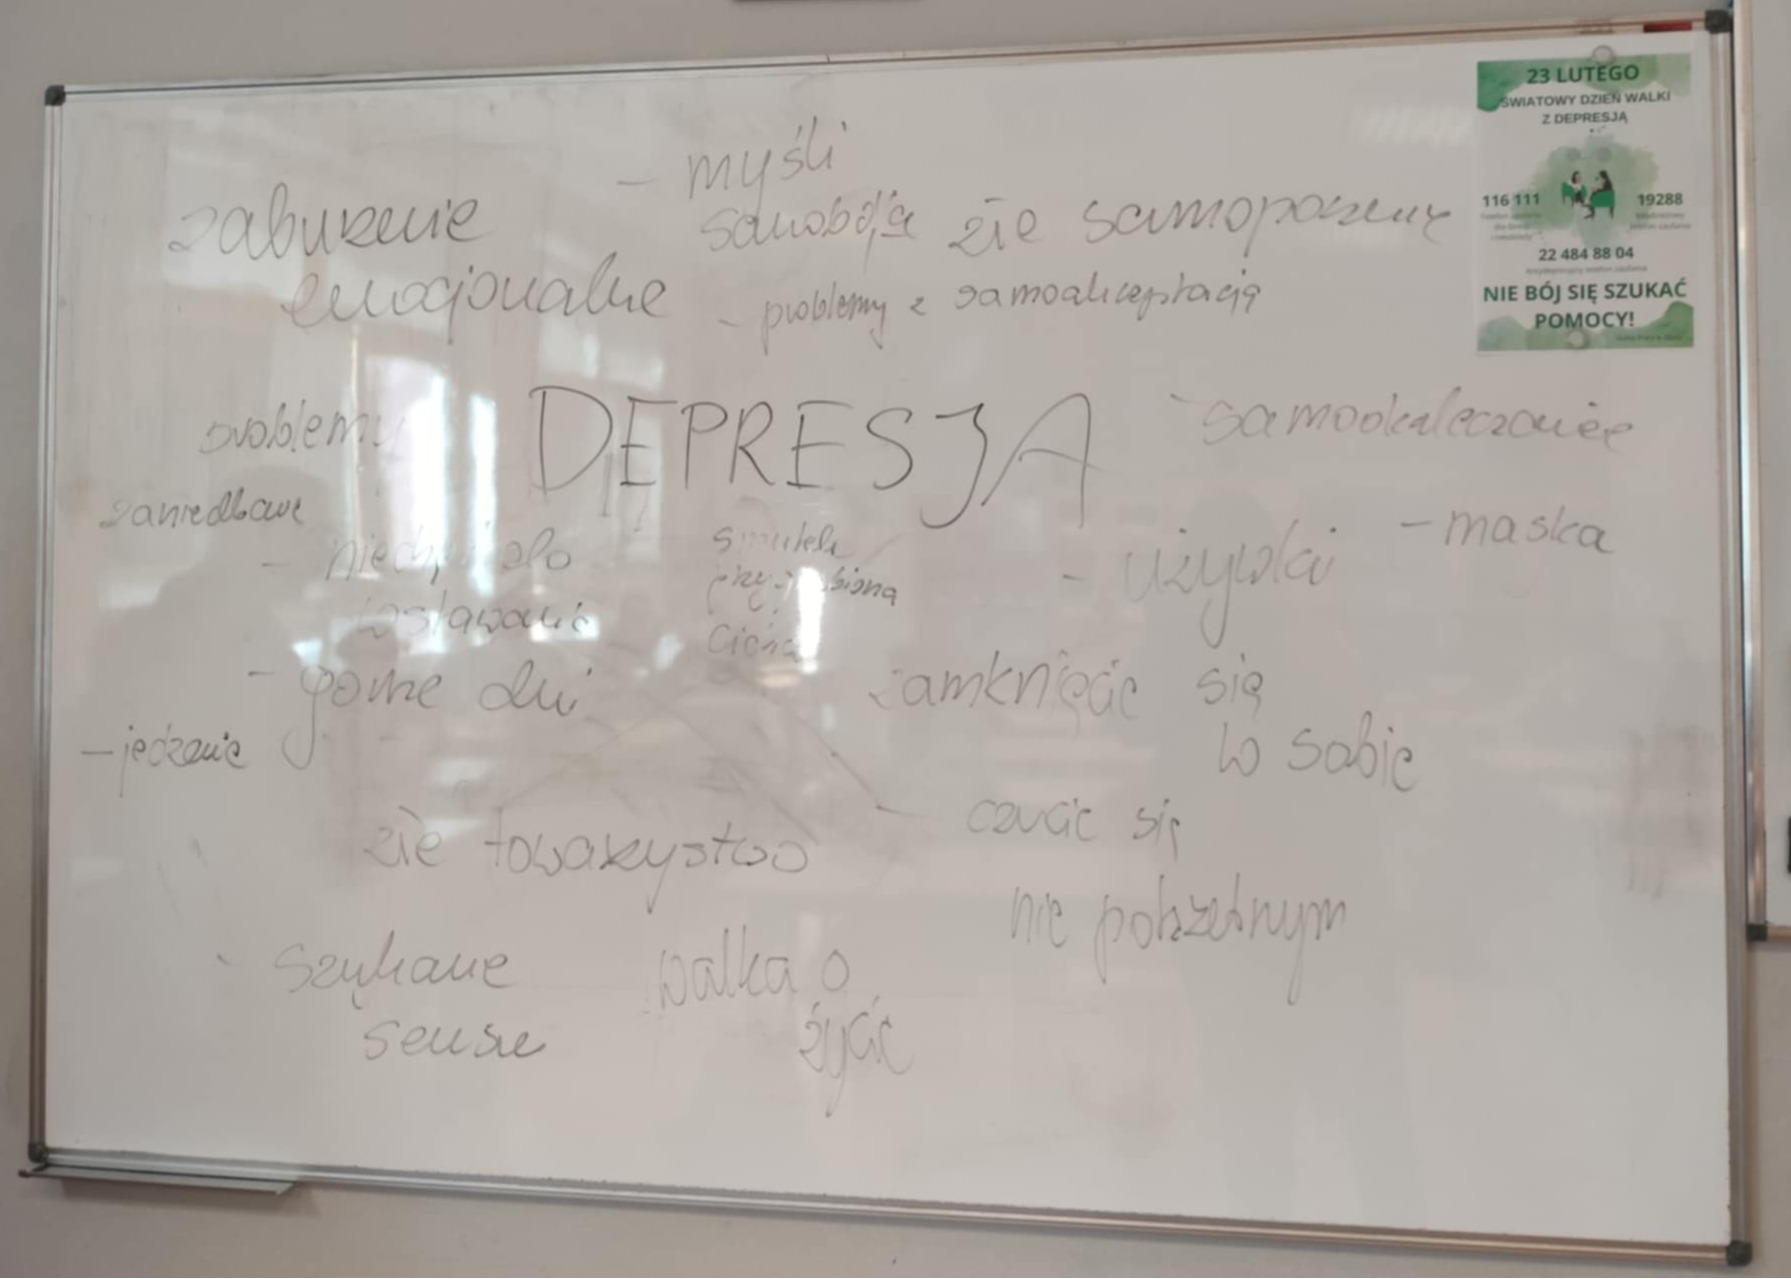 23 LUTEGO
ŚWIATOWY DZIEŃ WALKI
Z DEPRESJĄ
116 111
19288
22 484 88 04
NIE BÓJ SIĘ SZUKAĆ
POMOCY!
- myśli
samobójcze
zaburzenie
emocjonalne
złe samopoczucie
- problemy z samoakceptacją
DEPRESJA
problemy
- samookaleczanie
zaniedbanie
- maska
smutek
cicha
- używki
wstawanie
- gorsze dni
zamknięcie się
w sobie
- jedzenie
czucie się
nie potrzebnym
złe towarzystwo
- szukanie
sensu
walka o
życie